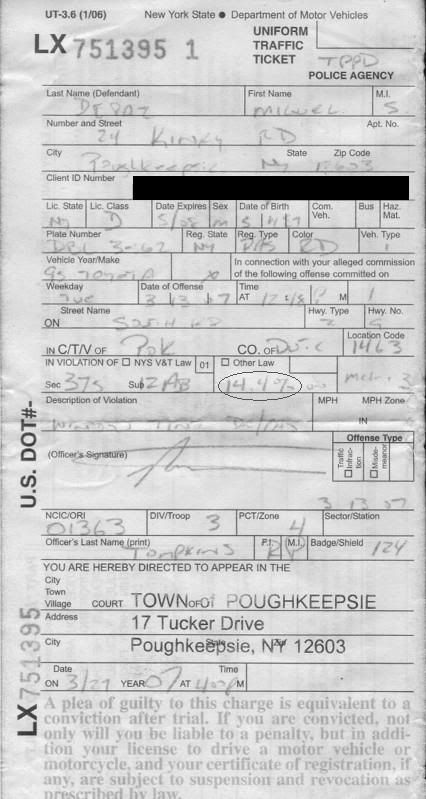 UT-3.6 (1/06) New York State ● Department of Motor Vehicles
LX 751395 1
UNIFORM
TRAFFIC
TICKET
TPPD
POLICE AGENCY
Last Name (Defendant) First Name M.I.
S
Number and Street Apt. No.
24 RD
City State Zip Code
Poughkeepsie NY
Client ID Number
Lic. State Lic. Class Date Expires Sex Date of Birth Com. Veh. Bus Haz. Mat.
NY D 5/08 M
Plate Number Reg. State Reg. Type Color Veh. Type
NY PAS RD 1
Vehicle Year/Make In connection with your alleged commission
of the following offense committed on
TOYOTA X
Weekday Date of Offense Time
TUE 3 13 07 AT P M 1
Street Name Hwy. Type Hwy. No.
ON 9
Location Code
IN C/T/V OF POK CO. OF 1463
IN VIOLATION OF ☐ NYS V&T Law 01 ☐ Other Law
Sec 375 Sub 12AB 14.4%
Description of Violation MPH MPH Zone
WINDOW IN
(Officer's Signature) Offense Type
Traffic Infrac- tion ☐
Misde- meanor ☐
3 13 07
NCIC/ORI DIV/Troop PCT/Zone Sector/Station
01363 3 4
Officer's Last Name (print) F.I. M.I. Badge/Shield
TOMPKINS R P 124
YOU ARE HEREBY DIRECTED TO APPEAR IN THE
City
Town
Village COURT TOWN OF POUGHKEEPSIE
Address 17 Tucker Drive
City State Zip
Poughkeepsie, NY 12603
Date Time
ON 3/27 YEAR 07 AT 4:00P M
A plea of guilty to this charge is equivalent to a
conviction after trial. If you are convicted, not
only will you be liable to a penalty, but in addi-
tion your license to drive a motor vehicle or
motorcycle, and your certificate of registration, if
any, are subject to suspension and revocation as
prescribed by law.
U.S. DOT#-
LX 751395